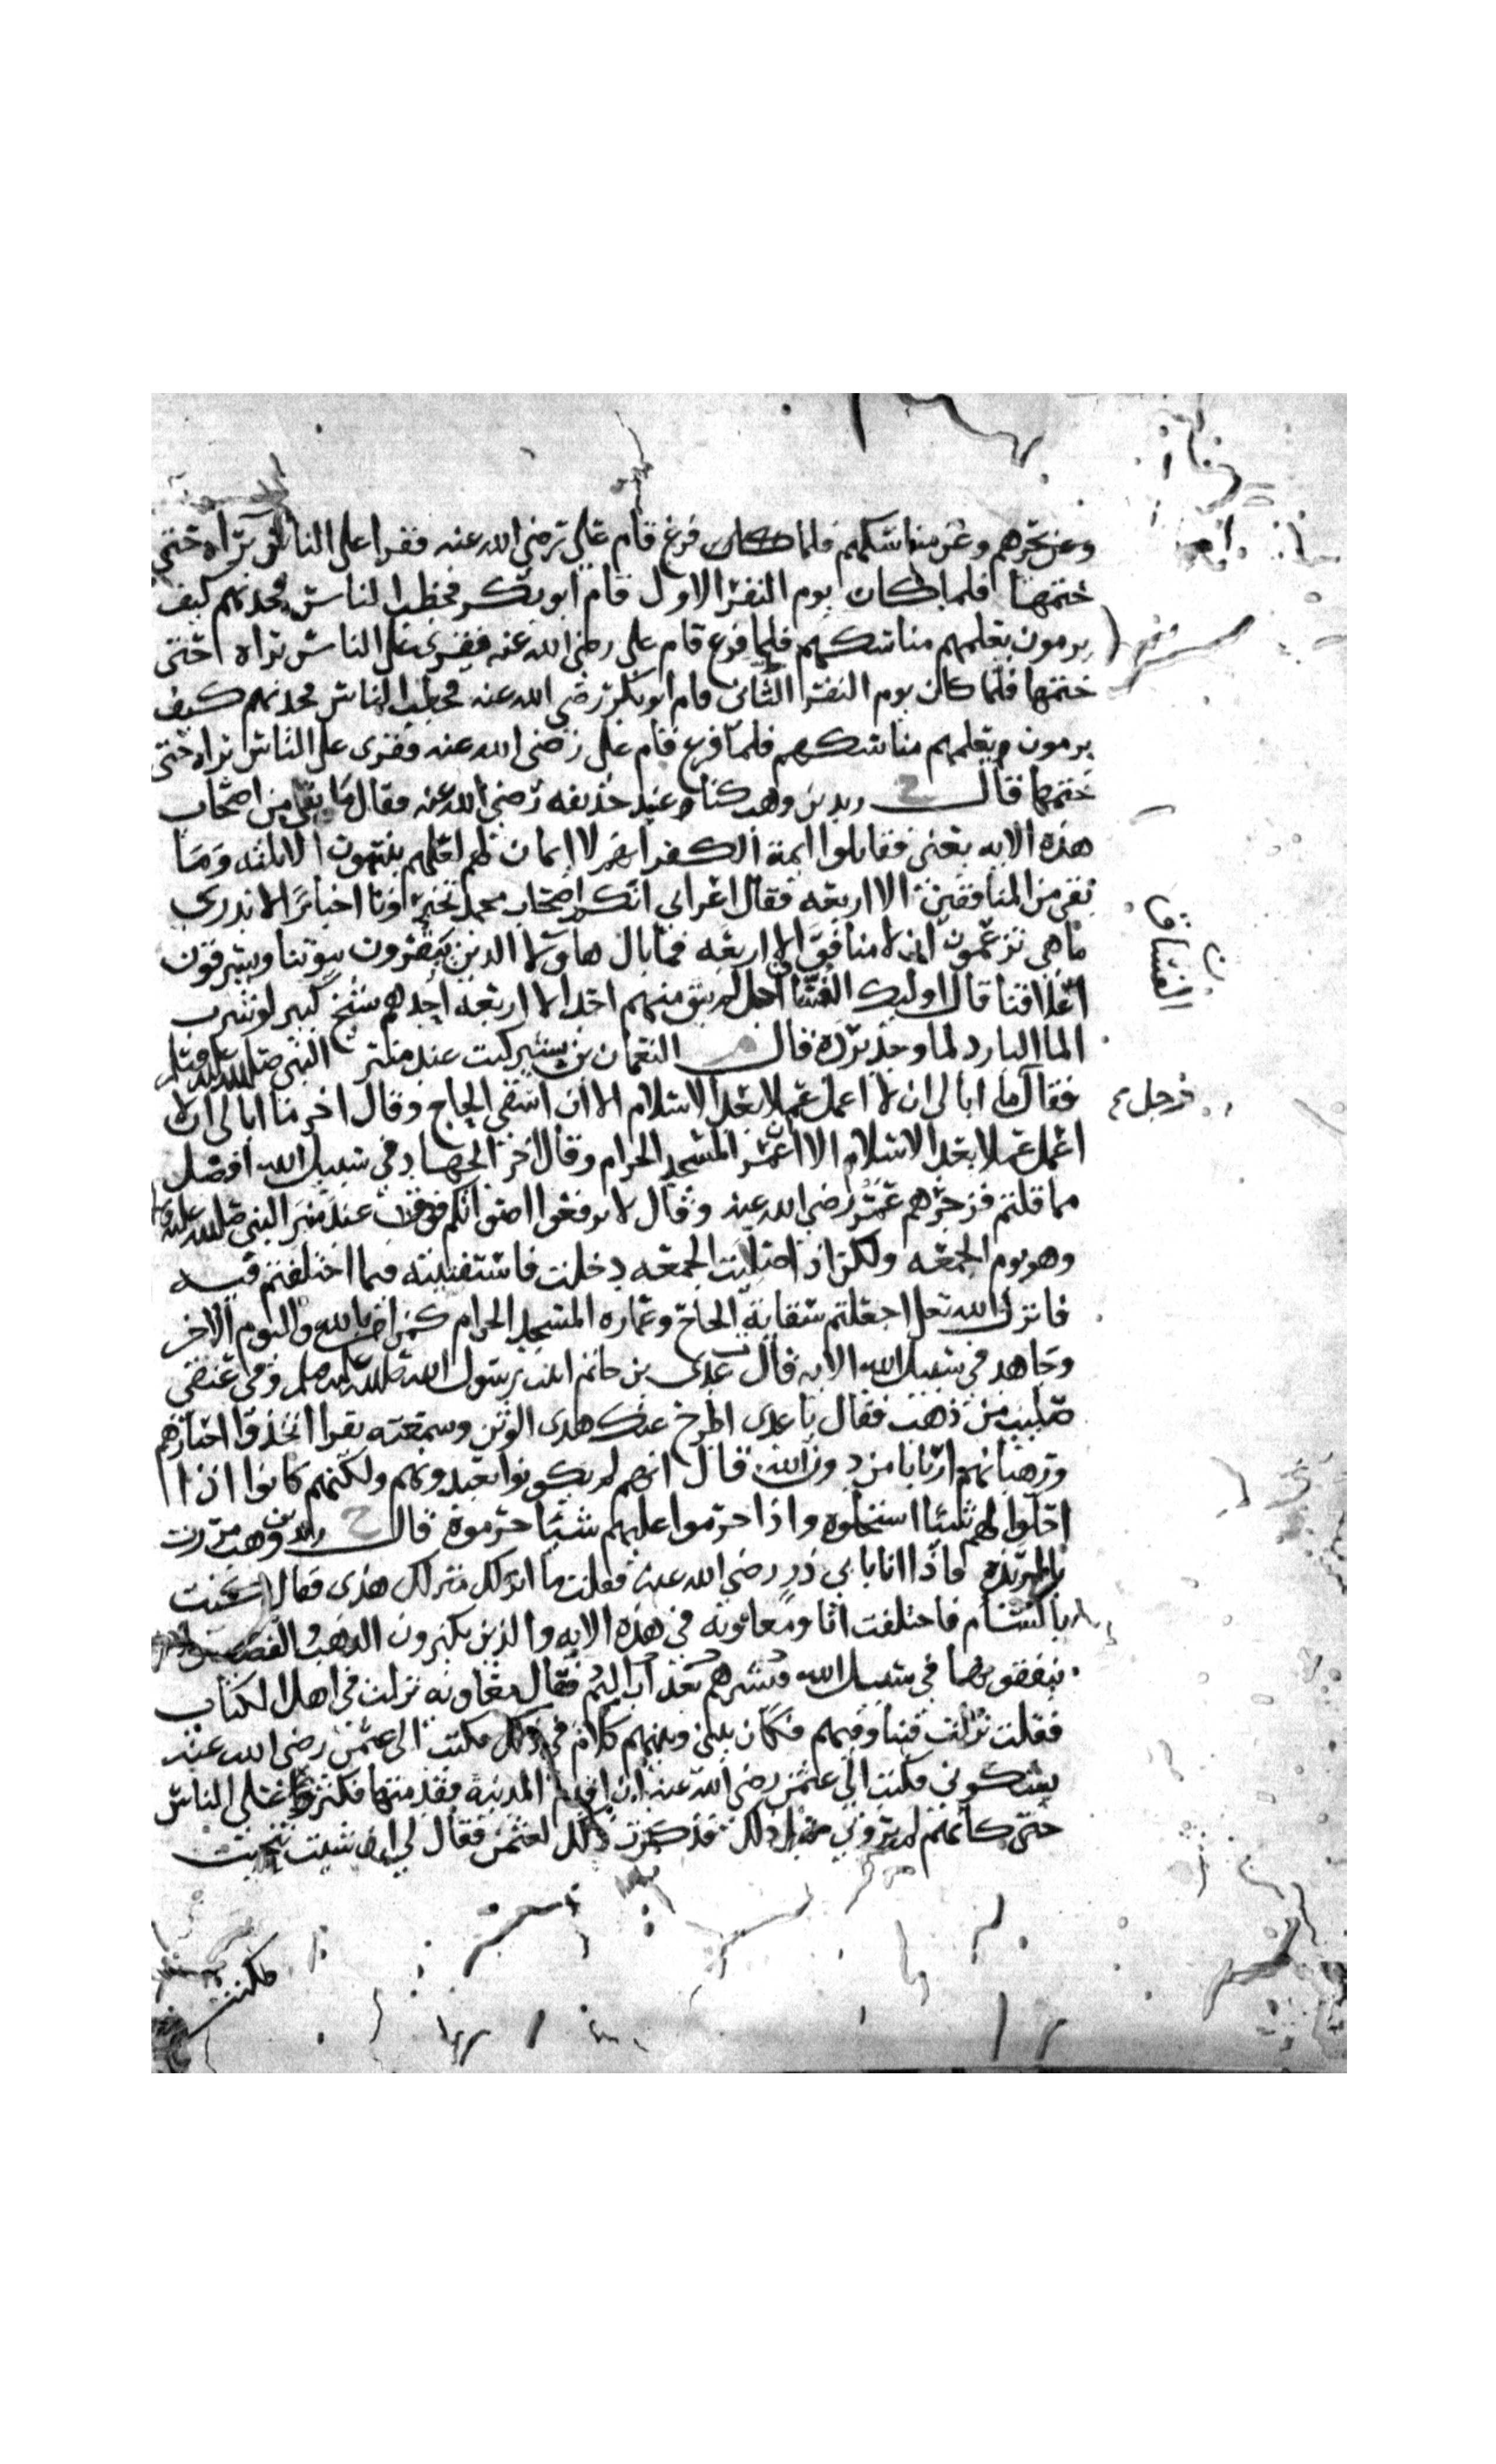 وعن نحرهم وعن مناسكهم فلما كان فرغ قام علي رضي الله عنه فقرا على الناس براه حتى
ختمها فلما كان يوم النفر الاول قام ابو بكر فخطب الناس فحدثهم كيف
يرمون يعلمهم مناسكهم فلما فرغ قام علي رضي الله عنه فقرى على الناس براه حتى
ختمها فلما كان يوم النفر الثاني قام ابو بكر رضي الله عنه فخطب الناس فحدثهم كيف
يرمون ويعلمهم مناسكهم فلما فرغ قام علي رضي الله عنه فقرى على الناس براه حتى
ختمها قال زيد بن وهب كنا عند حذيفه رضي الله عنه فقال ما بقي من اصحاب
هذه الايه يعني فقاتلوا ايمة الكفر انهم لا ايمان لهم لعلهم ينتهون الا ثلثه وما
بقي من المنافقين الا اربعه فقال اعرابي انكم اصحاب محمد تخبرونا اخبارا لا ندري
ما هي تزعمون ان لا منافق الا اربعه فما بال هاولا الذين يبقرون بيوتنا ويسرقون
اعلاقنا قال اوليك الفساق اجل لم يبق منهم احد الا اربعه احدهم شيخ كبير لو شرب
الما البارد لما وجد برده قال النعمان بن بشير كنت عند منبر النبي صلى الله عليه وسلم
فقال ما ابالي ان لا اعمل عملا بعد الاسلام الا ان اسقي الحاج وقال اخر ما ابالي ان لا
اعمل عملا بعد الاسلام الا ان اعمر المسجد الحرام وقال اخر الجهاد في سبيل الله افضل
مما قلتم فزجرهم عمر رضي الله عنه وقال لا ترفعوا اصواتكم عند منبر النبي صلى الله عليه
وهو يوم الجمعه ولكن اذا صليت الجمعه دخلت فاستفتيته فيما اختلفتم فيه
فانزل الله تعلى اجعلتم سقاية الحاج وعماره المسجد الحرام كمن امن بالله واليوم الاخر
وجاهد في سبيل الله الايه قال عدي بن حاتم اتيت رسول الله صلى الله عليه وسلم وفي عنقي
صليب من ذهب فقال يا عدي اطرح عنك هذى الوثن وسمعته يقرا اتخذوا احبارهم
ورهبانهم اربابا من دون الله قال انهم لم يكونوا يعبدونهم ولكنهم كانوا اذا
احلوا لهم شيئا استحلوه واذا حرموا عليهم شيئا حرموه قال زيد بن وهب مررت
بالربذه فاذا انا بابي ذر رضي الله عنه فقلت ما انزلك منزلك هذى فقال كنت
بالشام فاختلفت انا ومعاويه في هذه الايه والذين يكنزون الذهب والفضه
ينفقونها في سبيل الله فبشرهم بعذاب اليم فقال معاويه نزلت في اهل الكتاب
فقلت نزلت فينا وفيهم فكان بيني وبينهم كلام في ذلك فكتب الى عثمن رضي الله عنه
يشكوني فكتب الي عثمن رضي الله عنه ان اقدم المدينة فقدمتها فكثروا على الناس
حتى كانهم لم يروني قبل ذلك فذكرت ذلك لعثمن فقال لي ان شيت تنحيت
فكنت
الفساق
فرجل